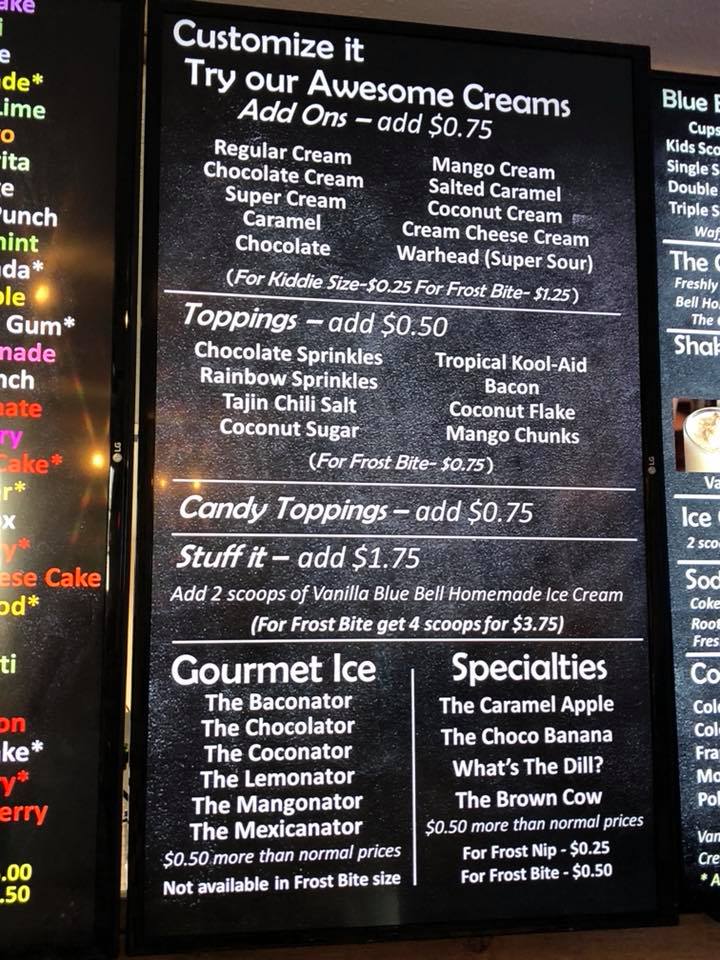 Lime
Punch
Gum*
Cake*
Cake
Customize it
Try our Awesome Creams
Add Ons – add $0.75
Regular Cream
Chocolate Cream
Super Cream
Caramel
Chocolate
Mango Cream
Salted Caramel
Coconut Cream
Cream Cheese Cream
Warhead (Super Sour)
(For Kiddie Size-$0.25 For Frost Bite- $1.25)
Toppings – add $0.50
Chocolate Sprinkles
Rainbow Sprinkles
Tajin Chili Salt
Coconut Sugar
Tropical Kool-Aid
Bacon
Coconut Flake
Mango Chunks
(For Frost Bite- $0.75)
Candy Toppings – add $0.75
Stuff it – add $1.75
Add 2 scoops of Vanilla Blue Bell Homemade Ice Cream
(For Frost Bite get 4 scoops for $3.75)
Gourmet Ice
The Baconator
The Chocolator
The Coconator
The Lemonator
The Mangonator
The Mexicanator
$0.50 more than normal prices
Not available in Frost Bite size
Specialties
The Caramel Apple
The Choco Banana
What's The Dill?
The Brown Cow
$0.50 more than normal prices
For Frost Nip - $0.25
For Frost Bite - $0.50
LG
LG
Blue
Cups
Kids
Single
Double
Triple
The
Freshly
Bell
The
Ice
2
Coke
Root